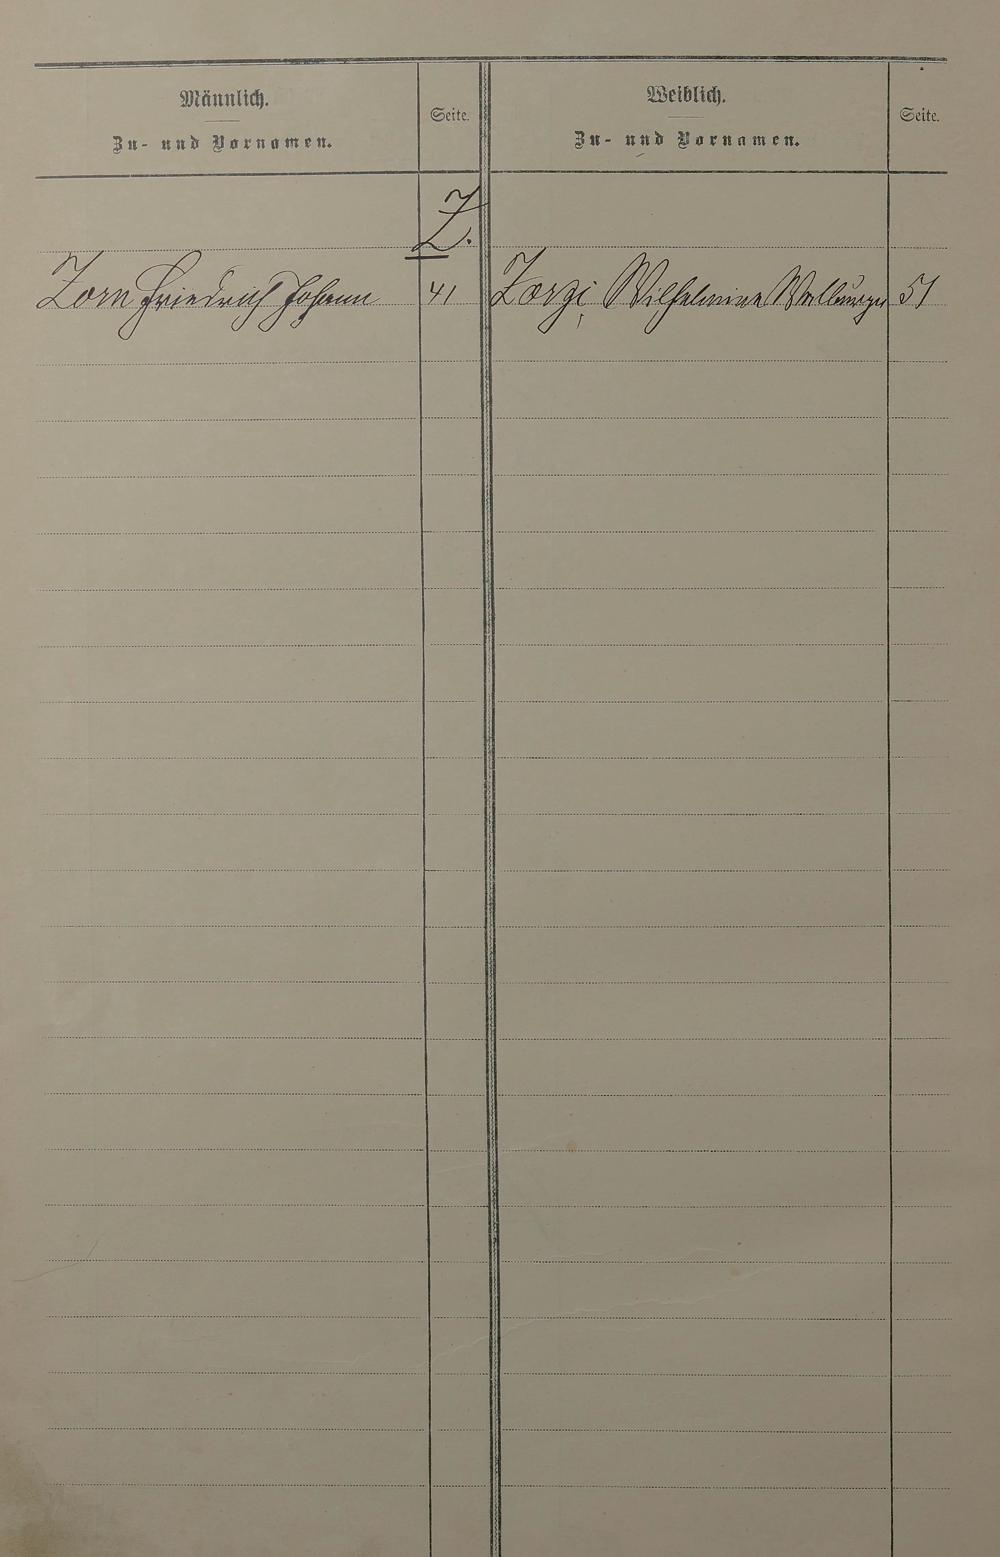 Männlich.
Zu- und Vornamen.
Seite.
Weiblich.
Zu- und Vornamen.
Seite.
Z.
Zorn Friedrich Johann 41
Zorzi, Wilhelmine Walburga 51